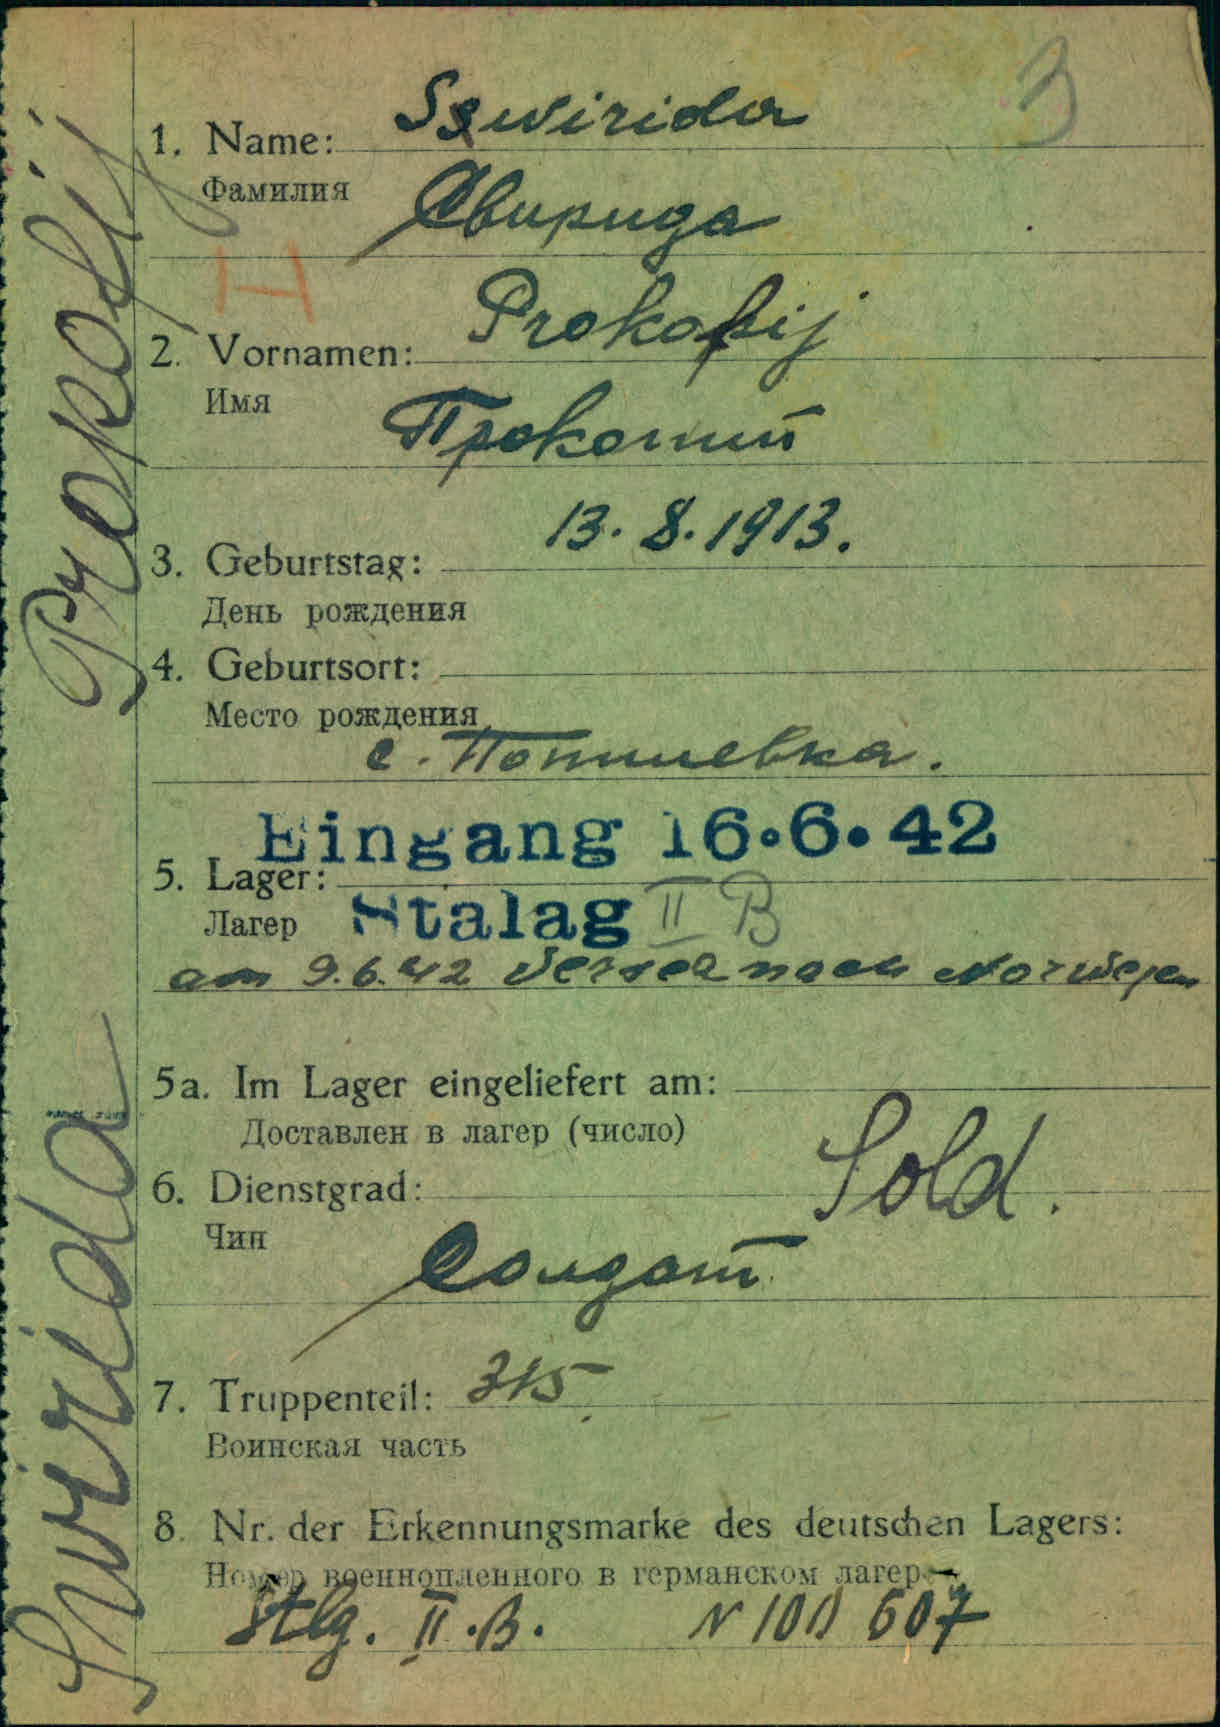 3
1. Name: Sswirida
Фамилия Свирида
H
2. Vornamen: Prokopij
Имя
Прокопий
13.8.1913.
3. Geburtstag:
День рождения
4. Geburtsort:
Место рождения
с. Попилевка.
Eingang 16.6.42
5. Lager:
Лагер Stalag II B
am 9.6.42 nach Norwegen
5a. Im Lager eingeliefert am:
Доставлен в лагер (число)
6. Dienstgrad: Sold.
Чин
Солдат
7. Truppenteil: 315
Воинская часть
8. Nr. der Erkennungsmarke des deutschen Lagers:
Номер военнопленного в германском лагер
Stlg. II.B. N 100 607
Swirida Prokofij